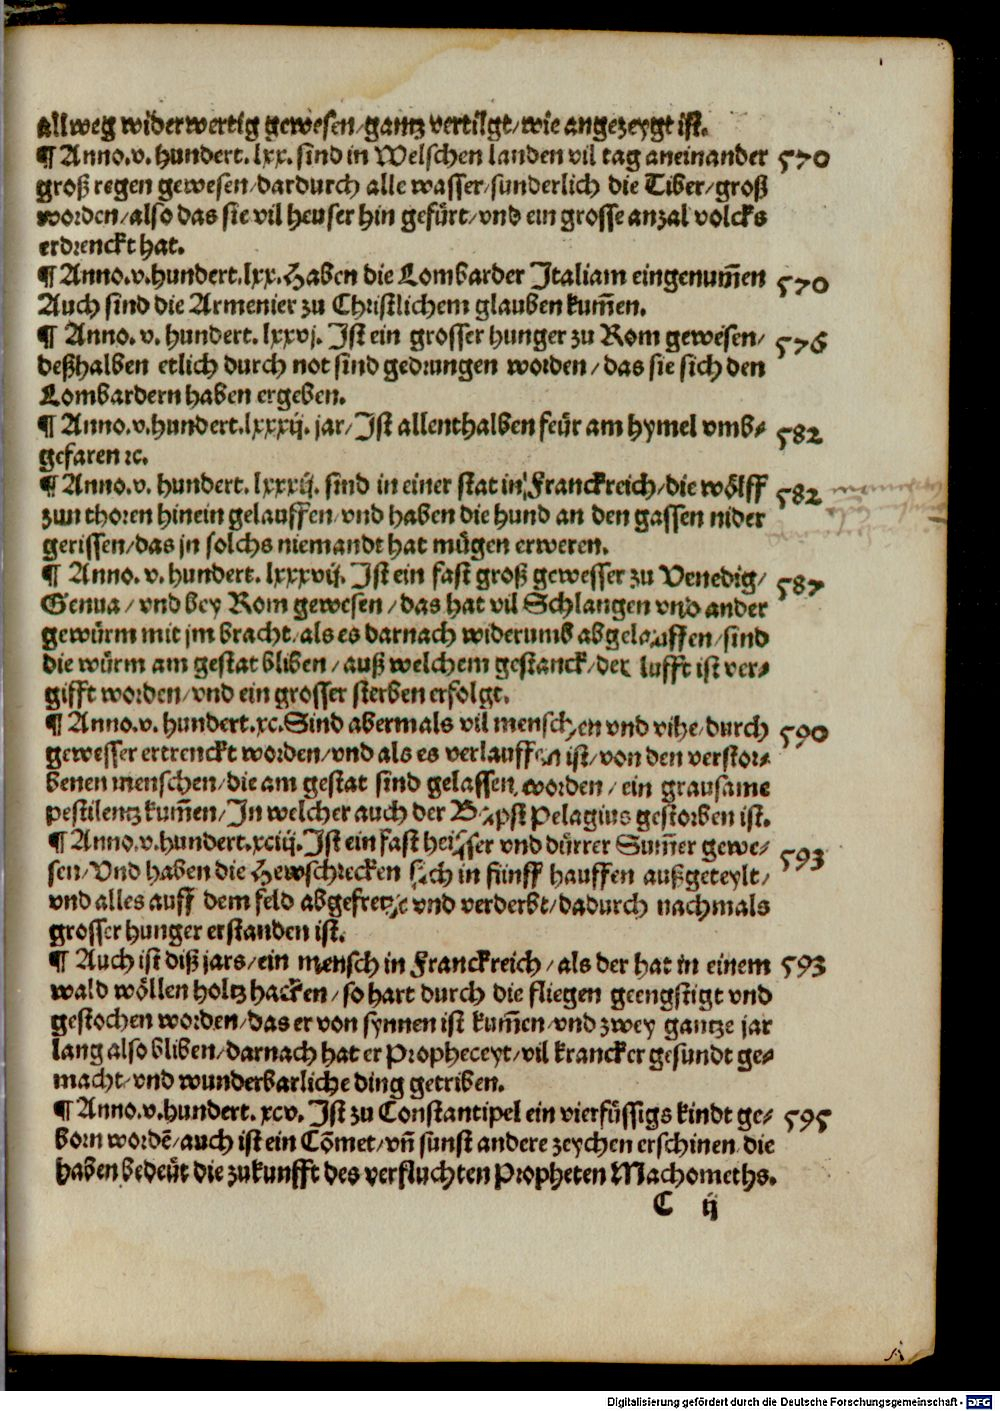 allweg widerwertig gewesen/gantz vertilgt/wie angezeygt ist.
¶ Anno.v. hundert. lxx. sind in Welschen landen vil tag aneinander 570
groß regen gewesen/dardurch alle wasser/sunderlich die Tiber/groß
worden/also das sie vil heuser hin gefürt/vnd ein grosse anzal volcks
erdrenckt hat.
¶ Anno.v.hundert.lxx.Haben die Lombarder Italiam eingenum̃en 570
Auch sind die Armenier zu Christlichem glauben kum̃en.
¶ Anno. v. hundert. lxxvj. Ist ein grosser hunger zu Rom gewesen/ 576
deßhalben etlich durch not sind gedrungen worden/das sie sich den
Lombardern haben ergeben.
¶ Anno.v.hundert.lxxxij. jar/Ist allenthalben feür am hymel vmb- 582
gefaren ꝛc.
¶ Anno.v. hundert. lxxxij. sind in einer stat in Franckreich/die wölff 582
zun thoren hinein gelauffen/vnd haben die hund an den gassen nider
gerissen/das jn solchs niemandt hat mügen erweren.
¶ Anno. v. hundert. lxxxvij. Ist ein fast groß gewesser zu Venedig/ 587
Genua/vnd bey Rom gewesen/das hat vil Schlangen vnd ander
gewürm mit jm bracht/als es darnach widerumb abgelauffen/sind
die würm am gestat bliben/auß welchem gestanck/der lufft ist ver-
gifft worden/vnd ein grosser sterben erfolgt.
¶ Anno.v. hundert.xc.Sind abermals vil menschen vnd vihe/durch 590
gewesser ertrenckt worden/vnd als es verlauffen ist/von den verstor-
benen menschen/die am gestat sind gelassen worden/ein grausame
pestilentz kum̃en/In welcher auch der Bapst Pelagius gestorben ist.
¶ Anno.v.hundert.xciij.Ist ein fast heisser vnd dürrer Sum̃er gewe- 593
sen/Vnd haben die Hewschrecken sich in fünff hauffen außgeteylt/
vnd alles auff dem feld abgefretzt vnd verderbt/dadurch nachmals
grosser hunger erstanden ist.
¶ Auch ist diß jars/ein mensch in Franckreich/als der hat in einem 593
wald wöllen holtz hacken/so hart durch die fliegen geengstigt vnd
gestochen worden/das er von synnen ist kum̃en/vnd zwey gantze jar
lang also bliben/darnach hat er Propheceyt/vil krancker gesundt ge-
macht/vnd wunderbarliche ding getriben.
¶ Anno.v.hundert. xcv. Ist zu Constantipel ein vierfüssigs kindt ge- 595
born wordẽ/auch ist ein Cõmet/vñ sunst andere zeychen erschinen/die
haben bedeüt die zukunfft des verfluchten Propheten Machomeths.
C ij
Digitalisierung gefördert durch die Deutsche Forschungsgemeinschaft - DFG